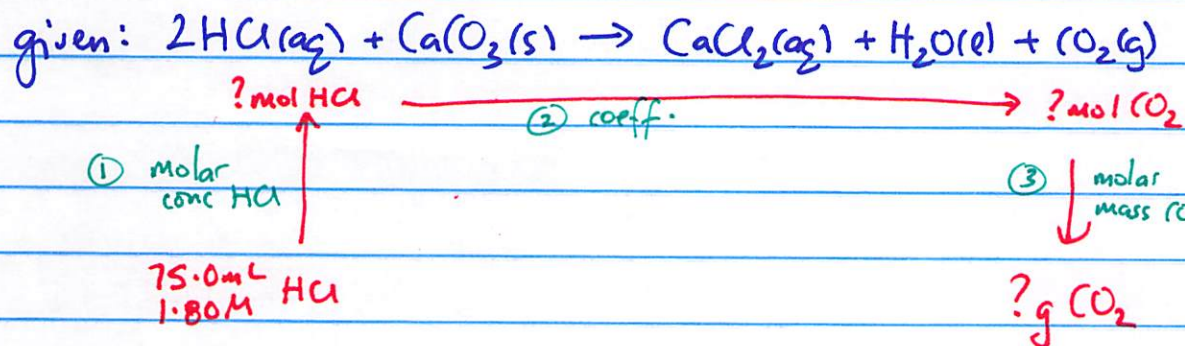 given: 2HCl(aq) + CaCO₃(s) → CaCl₂(aq) + H₂O(l) + CO₂(g)
? mol HCl → ? mol CO₂
② coeff.
① molar
conc HCl
③ molar
mass CO
75.0mL
1.80M HCl
? g CO₂